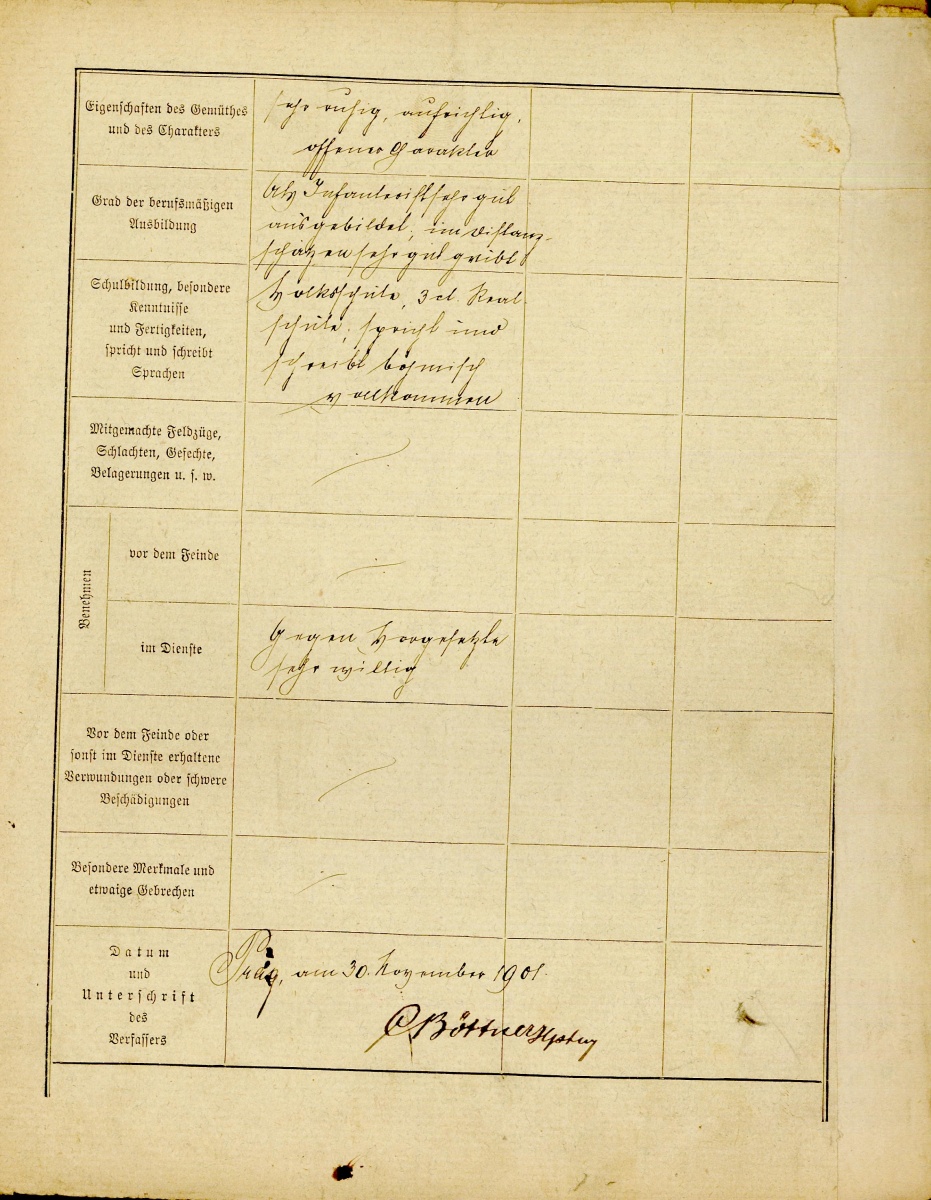 Eigenschaften des Gemüthes
und des Charakters
sehr ruhig, aufrichtig,
offener Charakter
Grad der berufsmäßigen
Ausbildung
Als Infanterist sehr gut
ausgebildet, im Distanz-
schäzen sehr gut geübt
Schulbildung, besondere
Kenntnisse
und Fertigkeiten,
spricht und schreibt
Sprachen
Volksschule, 3 cl. Real
schule, spricht und
schreibt böhmisch
vollkommen
Mitgemachte Feldzüge,
Schlachten, Gefechte,
Belagerungen u. s. w.
Benehmen
vor dem Feinde
im Dienste
Gegen Vorgesetzte
sehr willig
Vor dem Feinde oder
sonst im Dienste erhaltene
Verwundungen oder schwere
Beschädigungen
Besondere Merkmale und
etwaige Gebrechen
Datum
und
Unterschrift
des
Verfassers
Prag, am 30. November 1901.
CBöttner Hptm